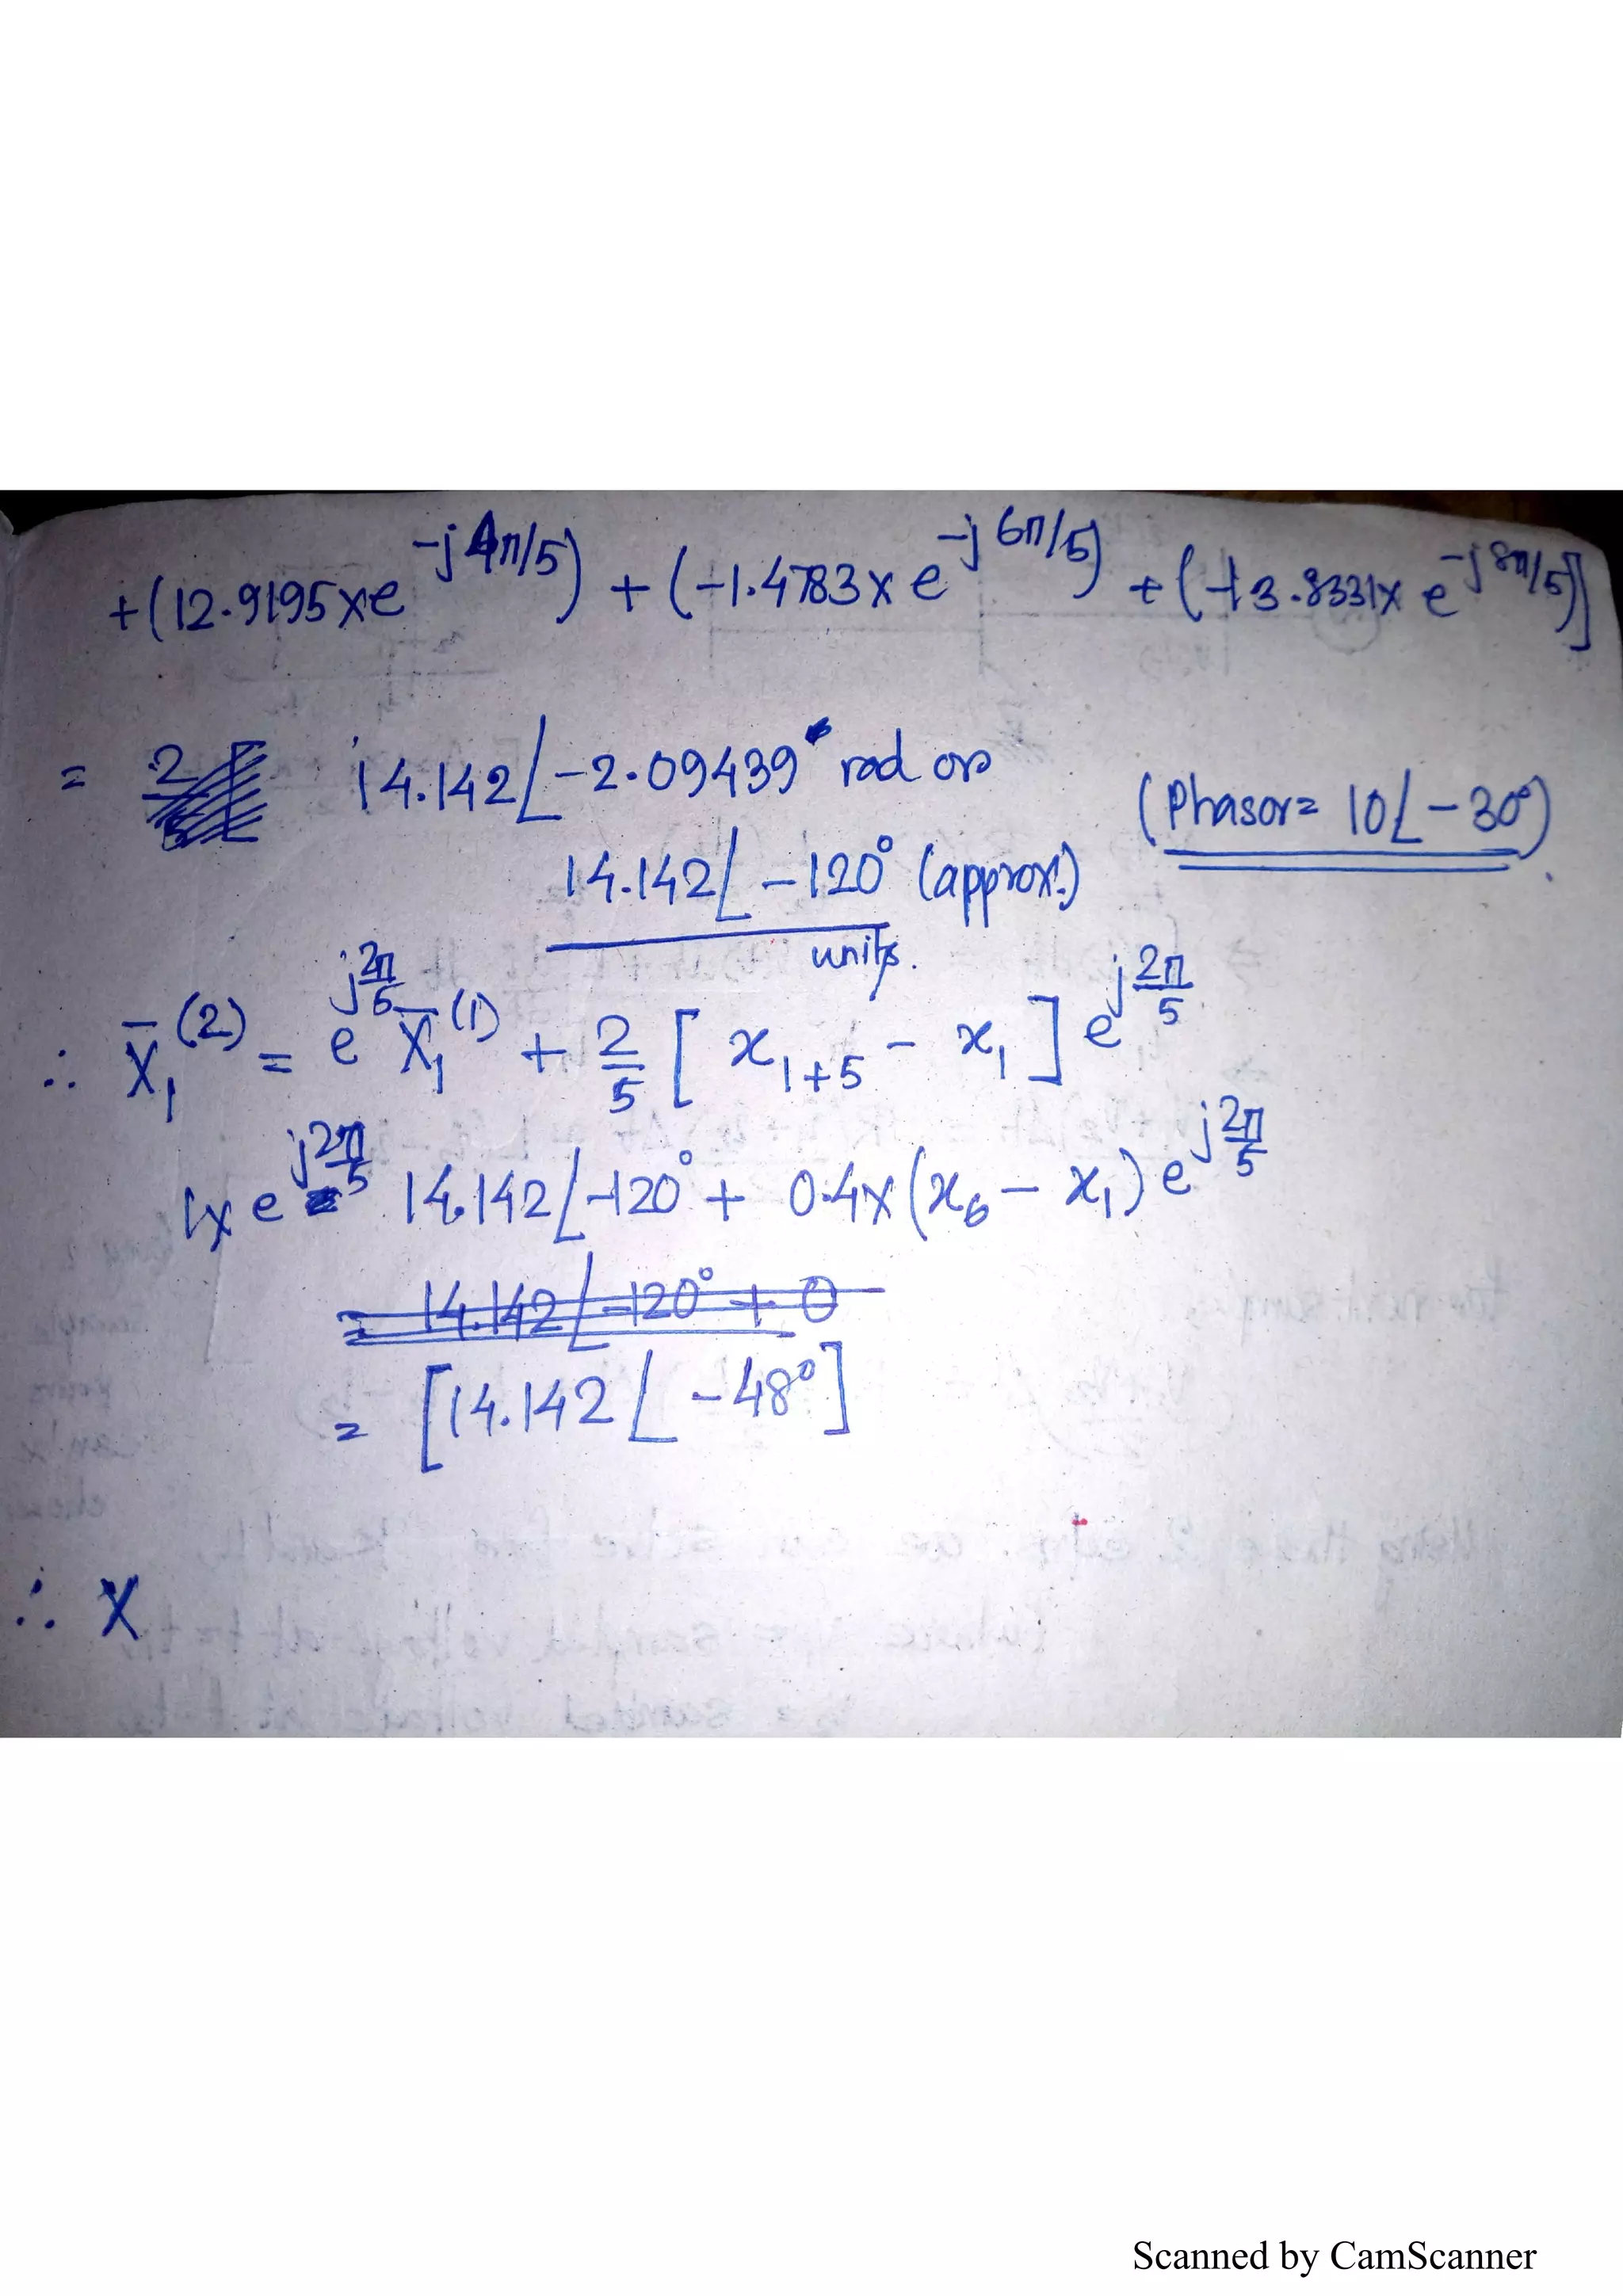 +(12.9195×e^{-j4π/5}) + (-1.4783×e^{-j6π/5}) + (-13.8331×e^{-j8π/5})]
= 2 14.142∠-2.09439 rad or
(Phasor = 10∠-30°).
14.142∠-120° (approx.)
units.
∴ X̄₁^{(2)} = e^{j2π/5} X̄₁^{(1)} + 2/5 [x_{1+5} - x₁] e^{j2π/5}
1× e^{j2π/5} 14.142∠-120° + 0.4×(x₆ - x₁) e^{j2π/5}
= 14.142∠-120° + 0
= [14.142∠-48°]
∴ X
Scanned by CamScanner